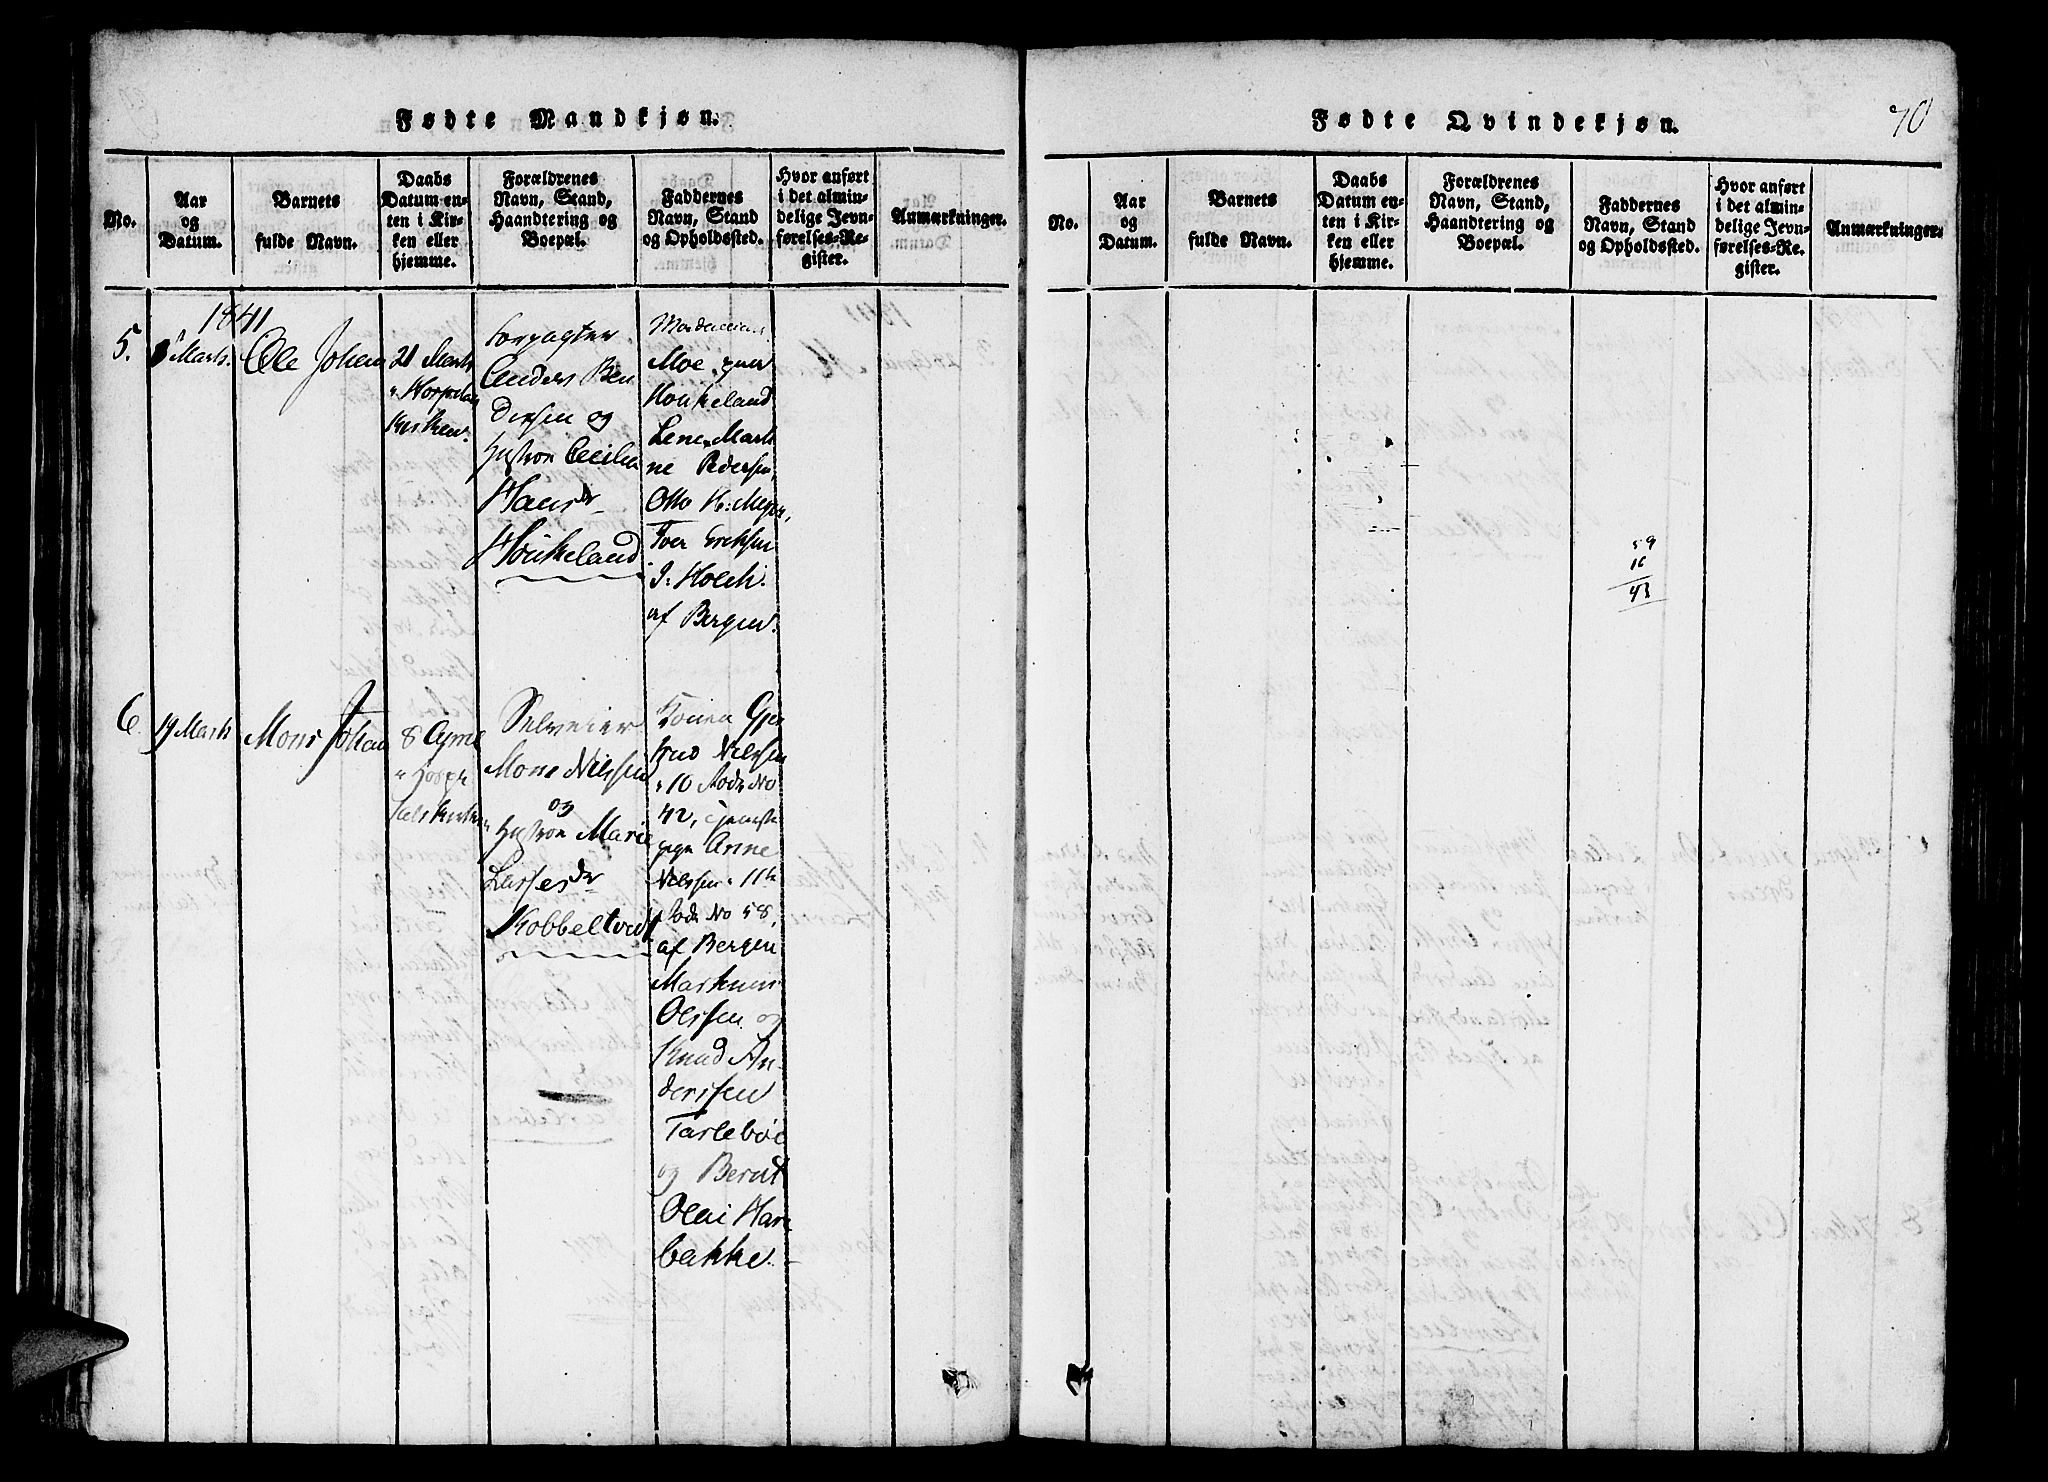 Fødte Mandkjøn.
No.
Aar
og
Datum.
Barnets
fulde Navn.
Daabs
Datum en-
ten i Kir-
ken eller
hjemme.
Forældrenes
Navn, Stand,
Haandtering og
Boepæl.
Faddernes
Navn, Stand
og Opholdssted.
Hvor anført
i det almin-
delige Jevn-
førelses-Re-
gister.
Anmærkninger.
1841
5.
Marts.
Ole Johan
21 Marts
Kirken.
Forpagter
Anders Ben
dixen og
Hustroe Cecilia
Hansdr
Houkeland
Moe
Houkeland
Lene Marti
ne Pedersen,
Otto H: Meyer,
Iver Erichsen
J: Holck
af Bergen.
6.
19 Marts
Mons Johan
8 April
i Hospi
tals Kirken
Selveier
Mons Nilssen
og
Hustroe Marie
Lassesdr
Kobbeltvedt
Kona Gjer
trud Nilssen
i 10 Rode No
42, Tjeneste
pige Anne
Nilssen i 11te
Rode No 58
af Bergen
Markus
Olssen og
Knud An-
derssen
Tarlebøe
og Bernt
Olai Har
bakke.
Fødte Qvindekjøn.
70
No.
Aar
og
Datum.
Barnets
fulde Navn.
Daabs
Datum en-
ten i Kir-
ken eller
hjemme.
Forældrenes
Navn, Stand,
Haandtering og
Boepæl.
Faddernes
Navn, Stand
og Opholdssted.
Hvor anført
i det almin-
delige Jevn-
førelses-Re-
gister.
Anmærkninger.
59
16
43